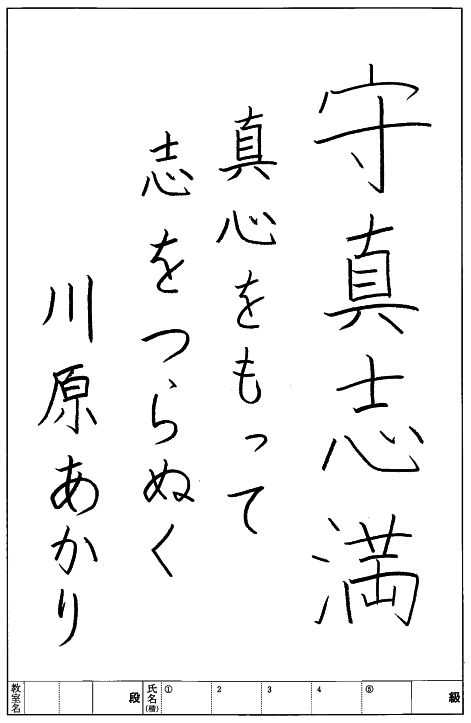 守真志満
真心をもって
志をつらぬく
川原あかり
教室名 段 氏名(楷) ① 2 3 4 ⑤ 級